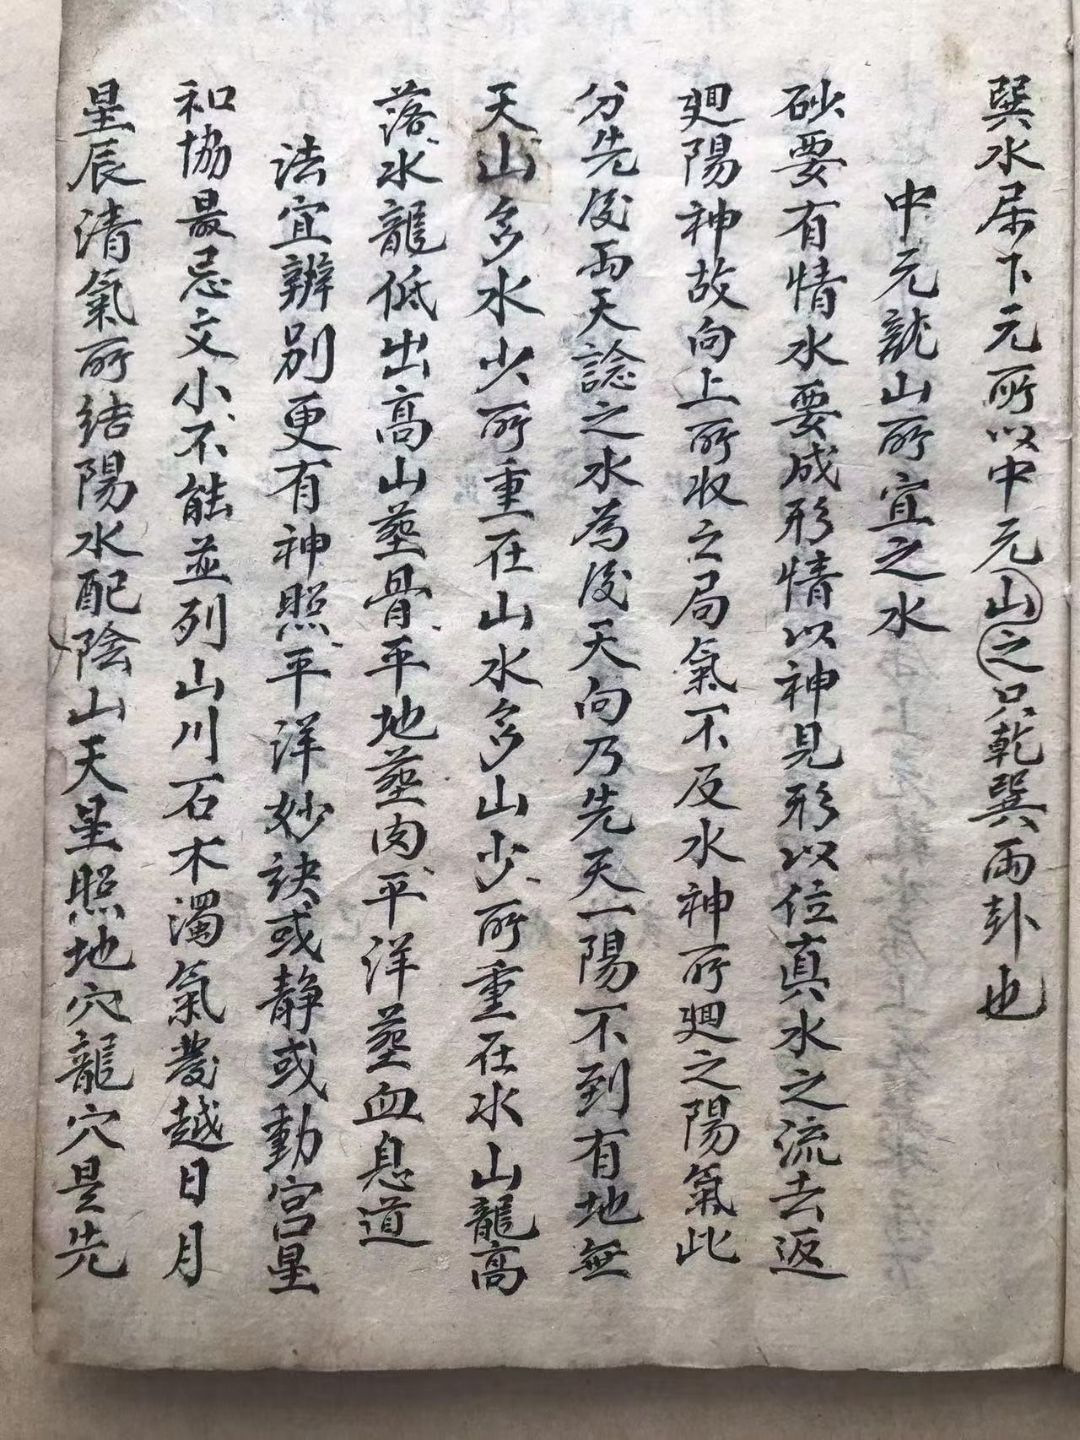 巽水屬下元所以中元山之只乾巽兩卦也
中元龍山所宜之水
砂要有情水要成形情以神見形以位真水之流去返
廻陽神故向上所收之局氣不及水神所廻之陽氣此
分先後兩天諗之水為後天向乃先天一陽不到有地無
天山多水少所重在山水多山少所重在水山龍高
落水龍低出高山塟骨平地塟肉平洋塟血息道
法宜辨別更有神照平洋妙訣或靜或動宮星
和協最忌文小不能並列山川石木濁氣發越日月
星辰清氣所結陽水配陰山天星照地穴龍穴是先